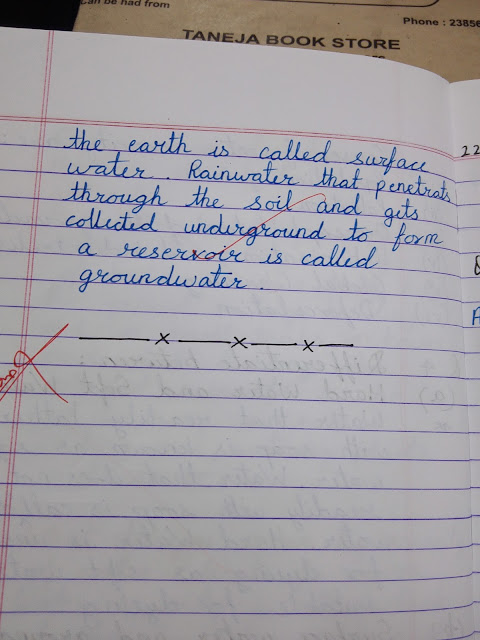 Can be had from
Phone : 23856
TANEJA BOOK STORE
the earth is called surface
water. Rainwater that penetrats
through the soil and gets
collected underground to form
a reservoir is called
groundwater.
22